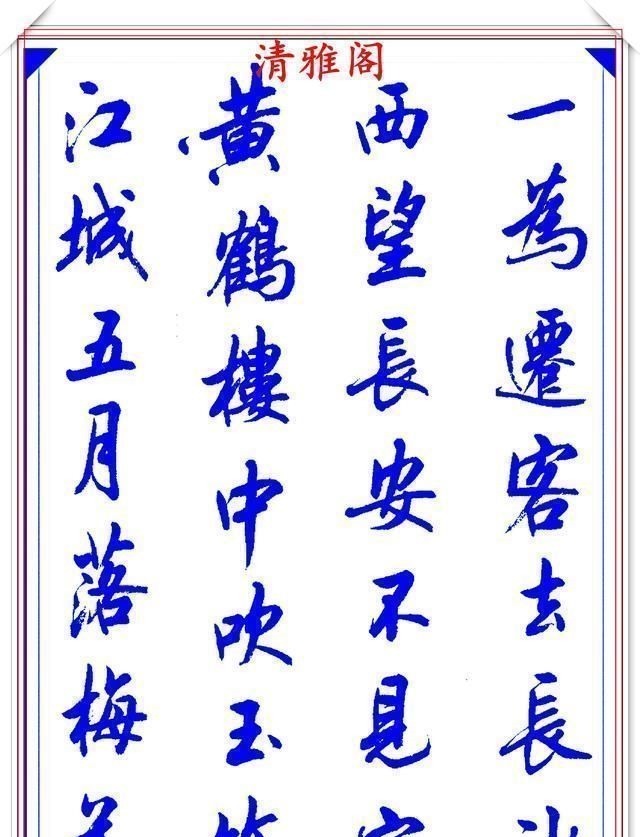 清雅阁
一為遷客去長
西望長安不見
黄鶴樓中吹玉
江城五月落梅